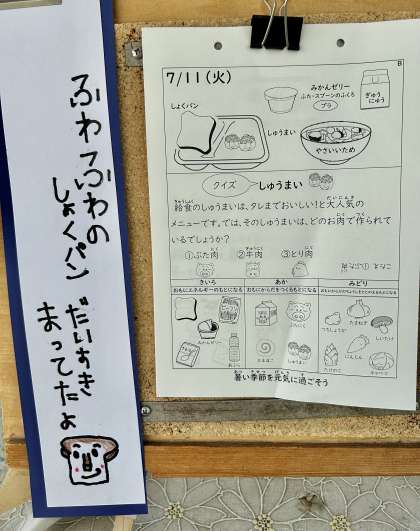 ふわふわの
しょくパン
だいすき
まってたよ
B
7/11(火)
みかんゼリー
ふた・スプーンのふくろ
プラ
ぎゅう
にゅう
しょくパン
しゅうまい
やさいいため
クイズ
しゅうまい
給食のしゅうまいは、タレまでおいしい!と大人気の
メニューです。では、そのしゅうまいは、どのお肉で作られて
いるでしょうか?
①ぶた肉 ②牛肉 ③とり肉
きいろ あか みどり
おもにエネルギーのもとになる おもにからだをつくるもとになる
たまねぎ
しいたけ
にんじん
たけのこ
キャベツ
しゅうまい
暑い季節を元気に過ごそう